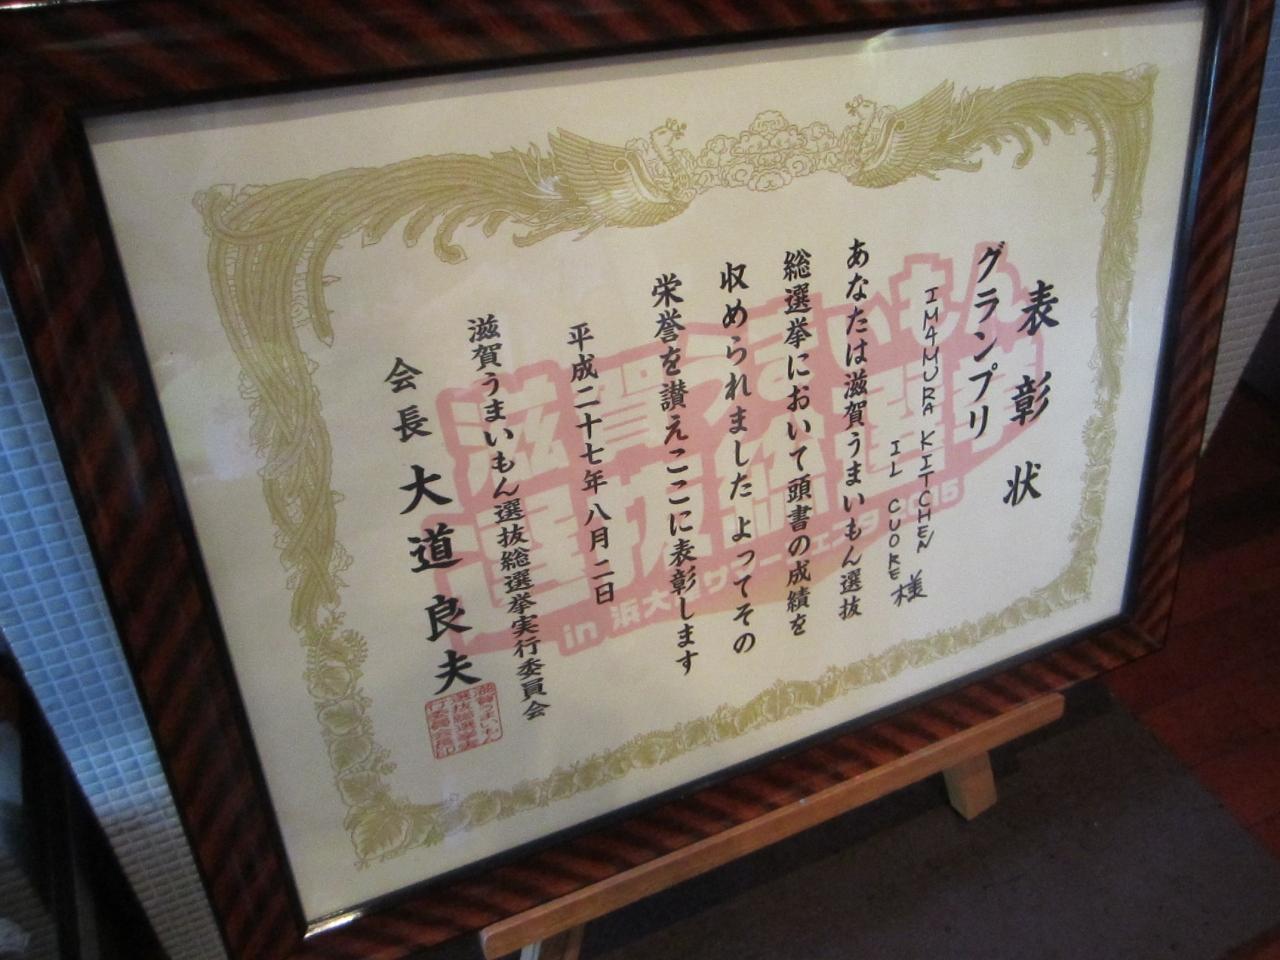 表彰状
グランプリ
IMAMURA KITCHEN
IL CUORE 様
あなたは滋賀うまいもん選抜
総選挙において頭書の成績を
収められました よってその
栄誉を讃えここに表彰します
平成二十七年八月二日
滋賀うまいもん選抜総選挙実行委員会
会長 大道良夫
滋賀うまいもん
選抜総選挙
in 浜大津サマーフェスタ 2015
滋賀うまいもん
選抜総選挙実
行委員会長印